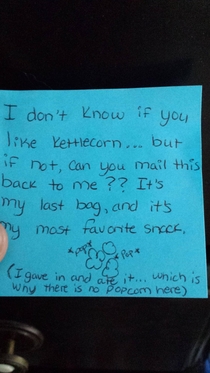 I don't know if you
like Kettlecorn... but
if not, can you mail this
back to me?? It's
my last bag, and it's
my most favorite snack.
*pop* *pop*
(I gave in and ate it... which is
why there is no popcorn here)